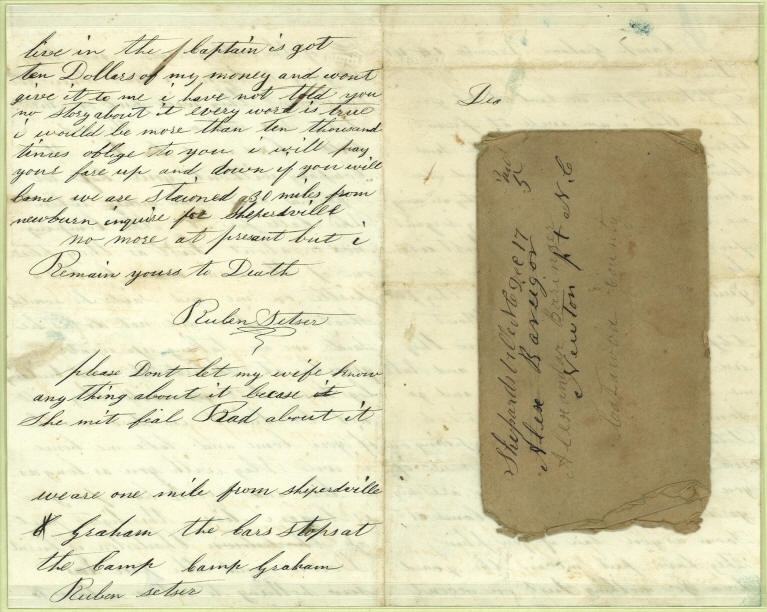 live in the Captain is got
ten Dollars of my money and wont
give it to me i have not told you
no story about it every word is true
i would be more than ten thousand
times oblige to you i will pay
your fare up and down if you will
Come we are stacioned 30 miles from
newburn inquire for Sheperdvill
no more at presant but i
Remain yours to Death
Ruben Setser
please Dont let my wife know
any thing about it becase it
She mit feal Bad about it
we are one mile from sheperdville
Graham the Cars stops at
the Camp Camp Graham
Ruben setser
Dea
Shepardsville NC Dec 17
Alex
Newton N.C
County